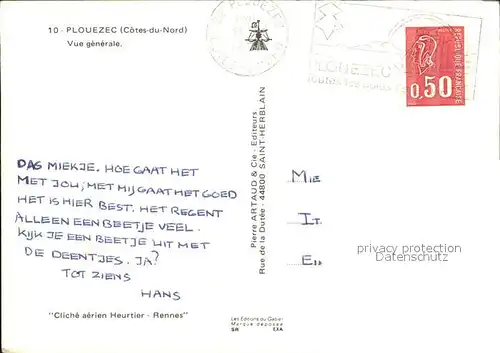 10 - PLOUEZEC (Côtes-du-Nord)
Vue générale.
PLOUEZEC
PLOUEZEC
REPUBLIQUE FRANÇAISE
0,50
DAG MIEKJE. HOE GAAT HET
MET JOU, MET MIJ GAAT HET GOED
HET IS HIER BEST. HET REGENT
ALLEEN EEN BEETJE VEEL.
KIJK JE EEN BEETJE UIT MET
DE DEENTJES. JA?
TOT ZIENS
HANS
"Cliché aérien Heurtier - Rennes"
Pierre ARTAUD & Cie - Editeurs
Rue de la Durée - 44800 SAINT-HERBLAIN
Les Editions du Gabier
Marque déposée
SR EXA
MIE
IT.
privacy protection
Datenschutz